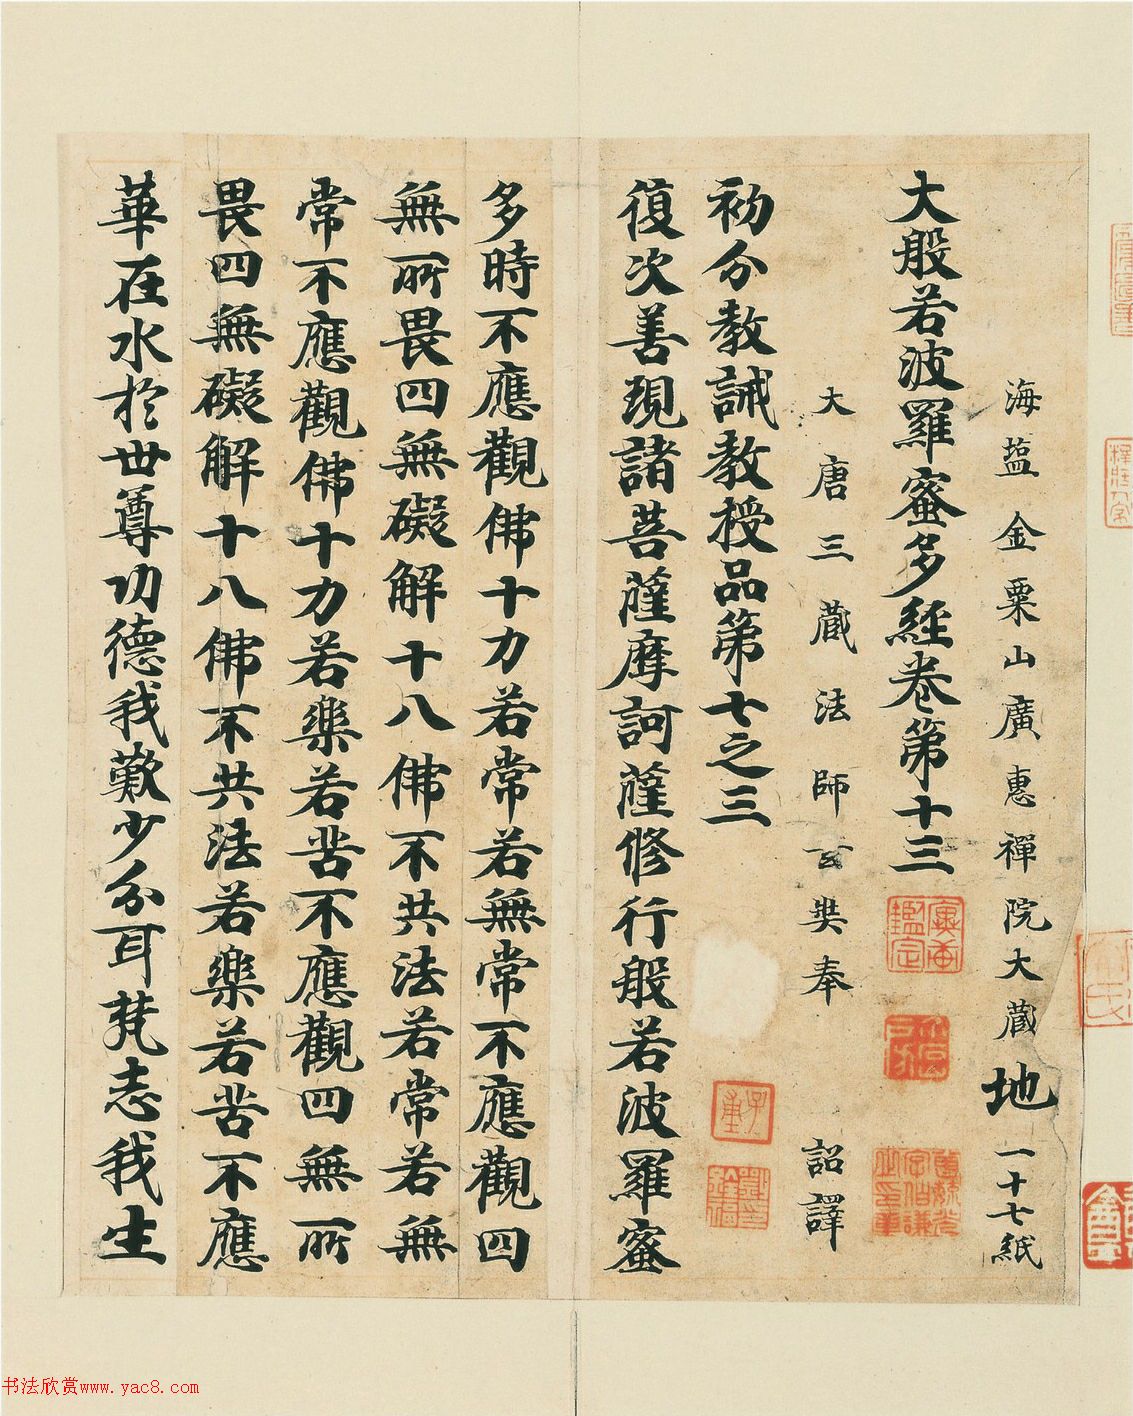 海塩金粟山廣惠禪院大藏 地 一十七紙
大般若波羅蜜多經卷第十三
大唐三藏法師玄奘奉 詔譯
初分教誡教授品第七之三
復次善現諸菩薩摩訶薩修行般若波羅蜜
多時不應觀佛十力若常若無常不應觀四
無所畏四無礙解十八佛不共法若常若無
常不應觀佛十力若樂若苦不應觀四無所
畏四無礙解十八佛不共法若樂若苦不應
華在水於世尊功德我歎少分耳梵志我生
书法欣赏www.yac8.com